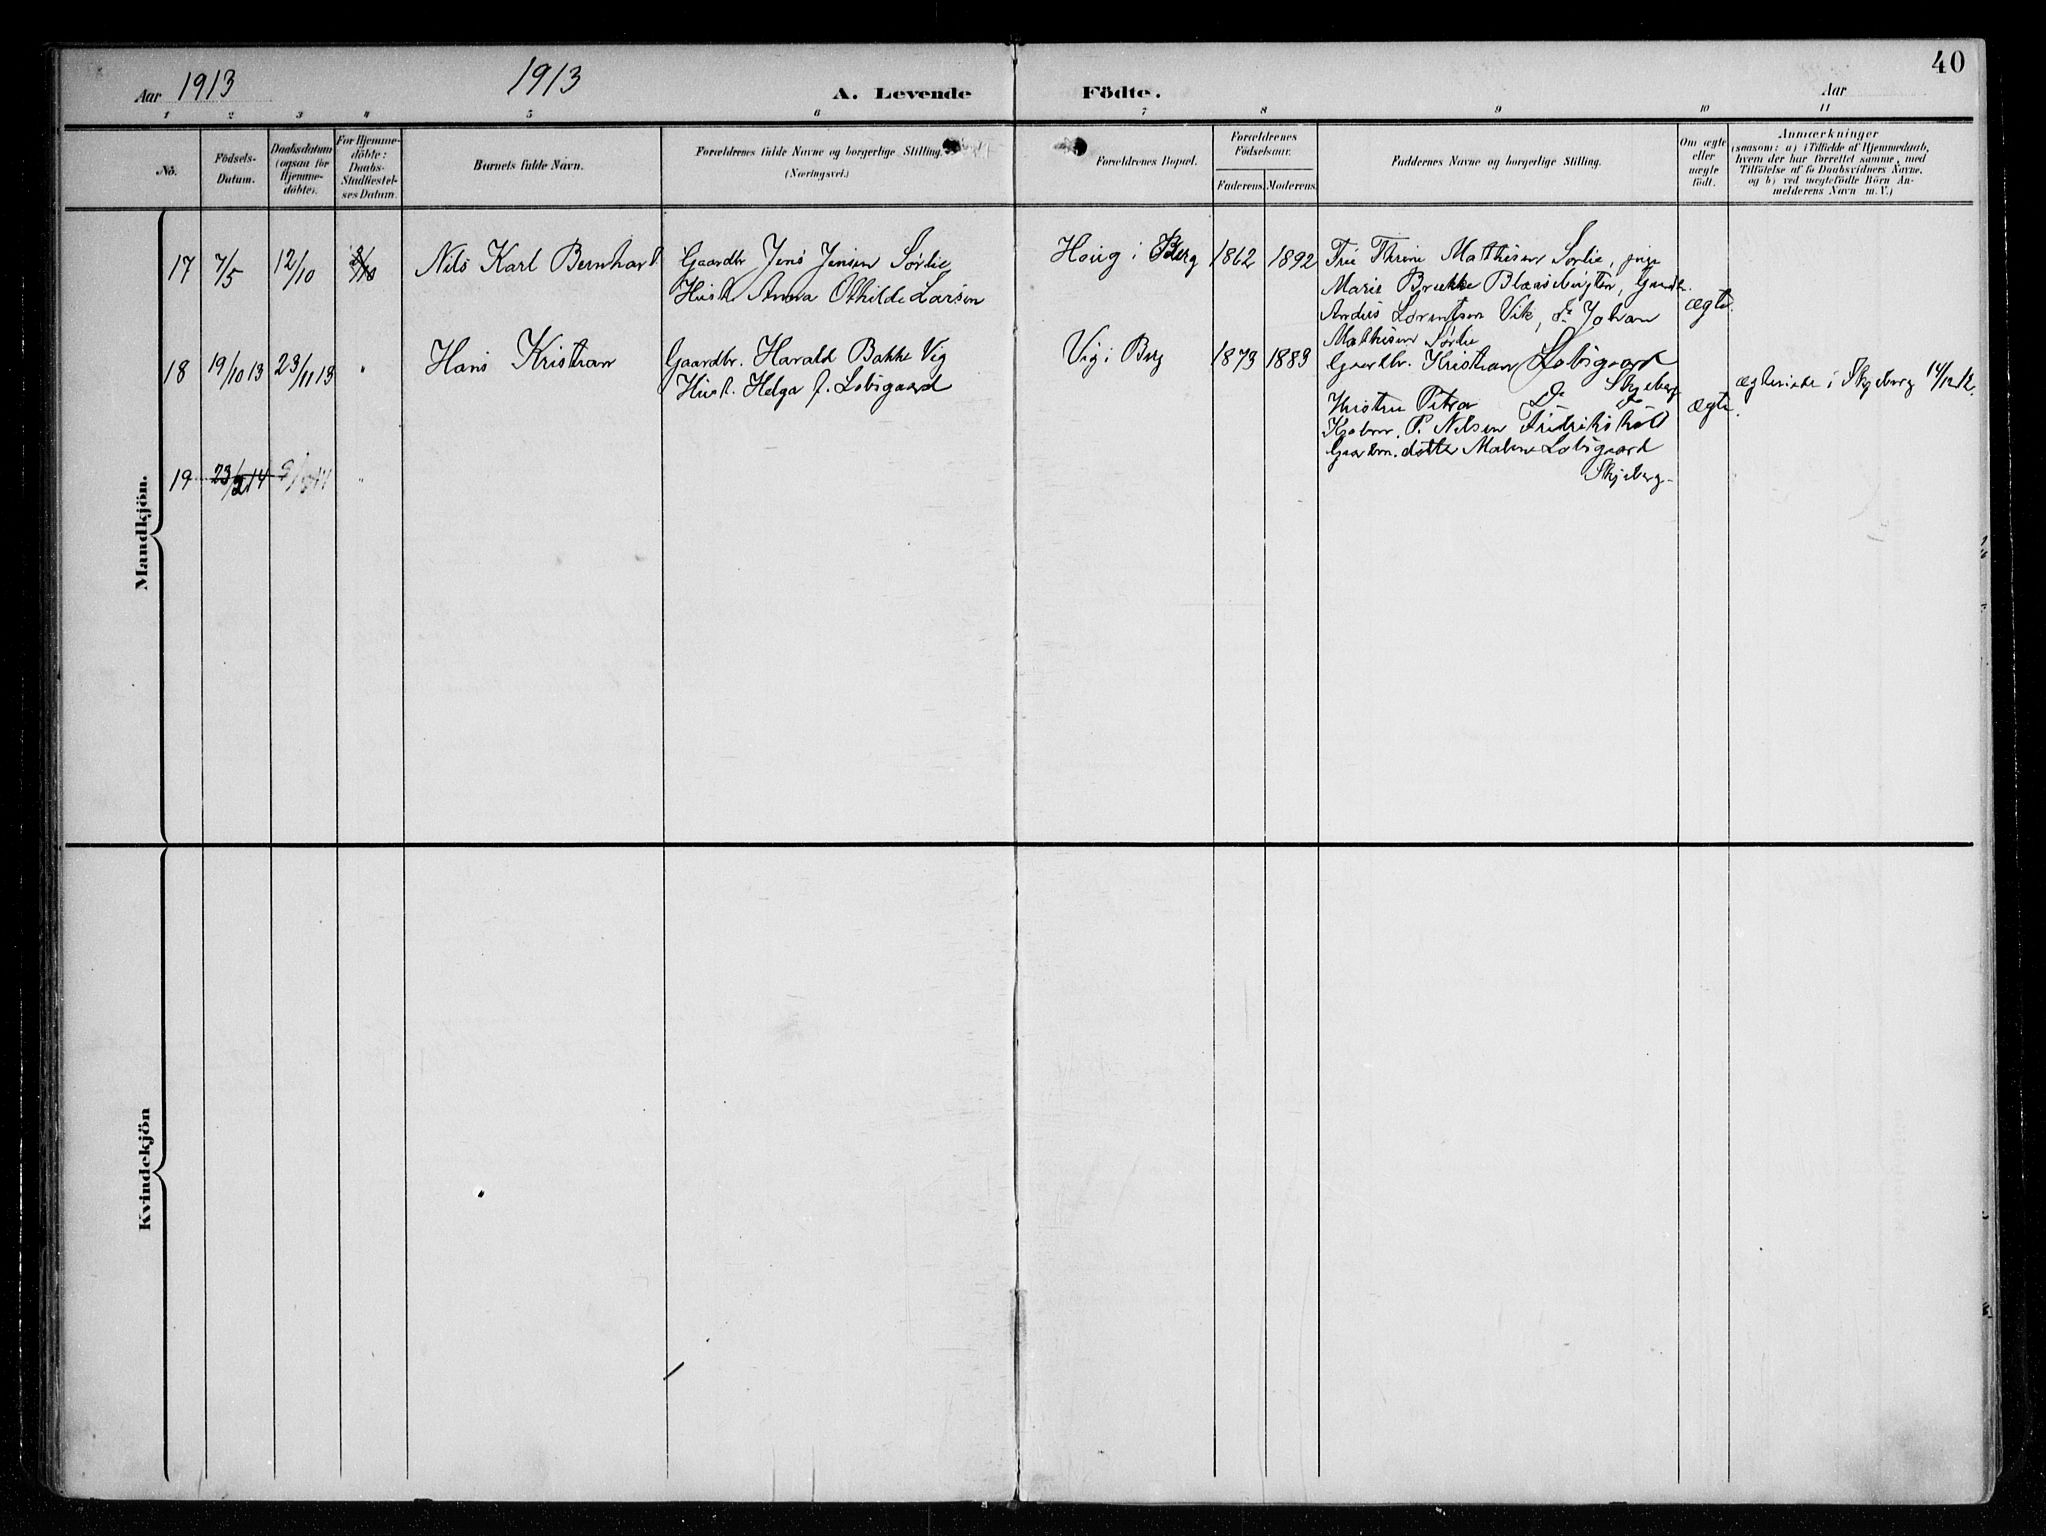 40
Aar 1913
1913
A. Levende Födte.
Aar
1 2 3 4 5 6 7 8 9 10 11
No.
Födsels-
Datum.
Daabsdatum
(ogsaa for
Hjemme-
döbte).
For Hjemme-
döbte:
Daabs-
Stadfæstel-
ses Datum.
Barnets fulde Navn.
Forældrenes fulde Navne og borgerlige Stilling.
(Næringsvei.)
Forældrenes Bopæl.
Forældrenes
Födselsaar.
Faderens. Moderens.
Faddernes Navne og borgerlige Stilling.
Om ægte
eller
uægte
födt.
Anmærkninger
(saasom: a) i Tilfælde af Hjemmedaab,
hvem der har forrettet samme, med
Tilföielse af to Daabsvidners Navne,
og b) ved uægtefödte Börn An-
melderens Navn m. V.)
Mandkjön.
17 7/5 12/10 Nils Karl Bernhard
Gaardbr Jens Jensen Sørlie
Hust. Anna Othilde Larsen
Houg i Berg 1862 1892
Frie Thrine Mathisen Sørlie, pige
Marie Brække, Gaardb.
Andrés Lorentsen Vik, do Johan
Mathisen Sørlie
ægte.
18 19/10 13 23/11 13 " Hans Kristian
Gaardbr. Harald Bakke Vig
Hust. Helga f. Lobsgaard
Vig i Berg 1873 1883
Gaardbr. Kristian Lobsgaard
Skjeberg
Hustru Petra Do Do
Kjøbm. P. Nilsen Fredrikshald
Gaardbr. datter Malene Lobsgaard
Skjeberg
ægte.
ægteviede i Skjeberg 14/12 12.
19 23/2 14 "
Kvindekjön